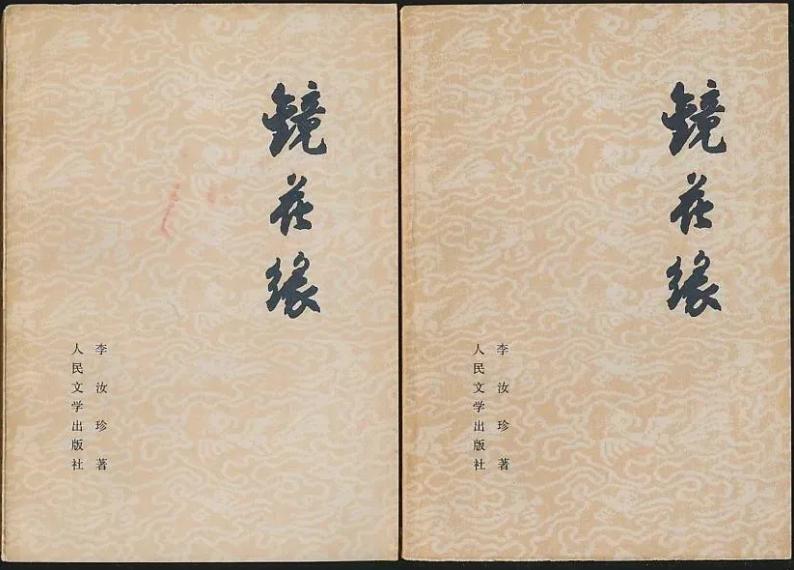 镜花缘
李汝珍 著
人民文学出版社
镜花缘
李汝珍 著
人民文学出版社